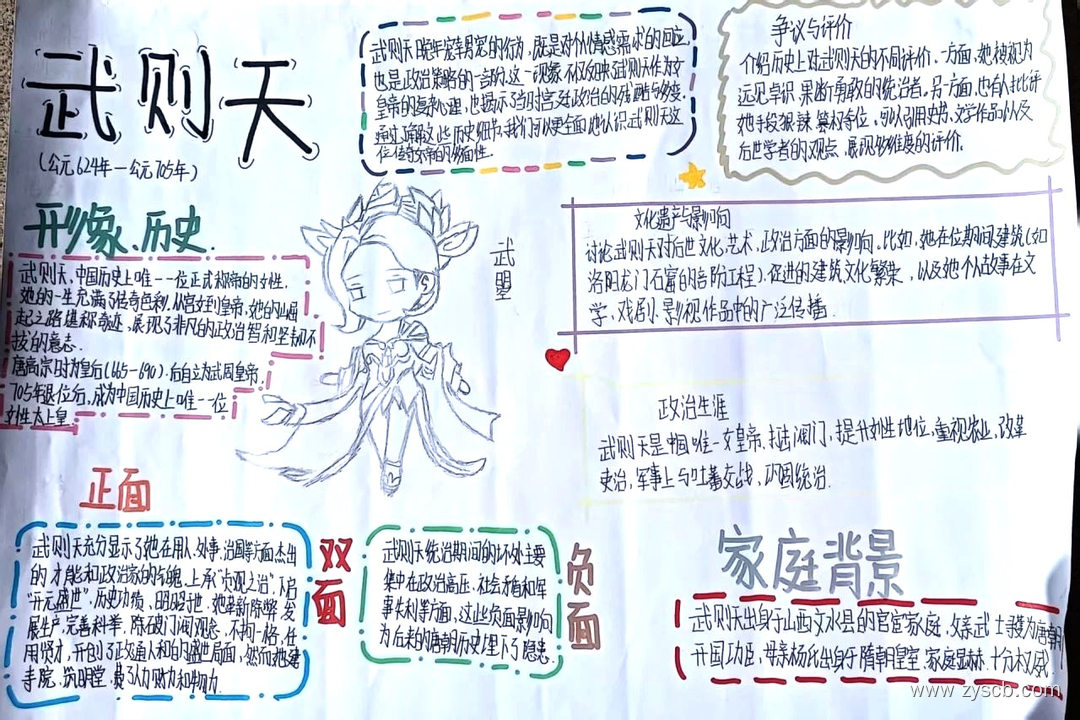 武则天
(公元624年—公元705年)
武则天晚年宠幸男宠的行为,既是对个人情感需求的回应,
也是政治策略的一部分。这一现象不仅反映了武则天作为女
皇帝的复杂心理,也揭示了当时宫廷政治的残酷与多变。
通过了解这些历史细节,我们可以更全面地认识武则天这
位传奇女帝的多面性。
争议与评价
介绍历史上对武则天的不同评价,一方面,她被视为
远见卓识、果断勇敢的统治者,另一方面,也有人批评
她手段狠辣、篡权夺位,可以引用史书、文学作品以及
后世学者的观点,展现多维度的评价.
形象、历史.
武则天,中国历史上唯一一位正式称帝的女性.
她的一生充满了传奇色彩,从宫女到皇帝,她的崛
起之路堪称奇迹,展现了非凡的政治智和坚韧不
拔的意志.
唐高宗时为皇后(665-690).后自立为武周皇帝.
705年退位后,成为中国历史上唯一一位
女性太上皇.
武曌
文化遗产与影响
讨论武则天对后世文化、艺术、政治方面的影响,比如,她在位期间建筑(如
洛阳龙门石窟的部分工程).促进的建筑文化繁荣,以及她个人故事在文
学、戏剧、影视作品中的广泛传播.
政治生涯
武则天是中国唯一女皇帝,打击阀门,提升女性地位,重视农业,改革
吏治,军事上与吐蕃交战,巩固统治.
正面
武则天充分显示了她在用人、处事、治国等方面杰出
的才能和政治家的气魄.上承“贞观之治”,下启
“开元盛世”,历史功绩、昭昭于世.她革新除弊,发
展生产,完善科举,除破门阀观念,不拘一格,任
用贤才,开创了政通人和的盛世局面,然而她建
寺院、筑明堂,费了人力财力和物力.
双面
武则天统治期间的坏处主要
集中在政治高压,社会矛盾和军
事失利等方面,这些负面影响
为后来的唐朝历史埋下了隐患.
负面
家庭背景
武则天出身于山西文水县的官宦家庭,父亲武士彟为唐朝
开国功臣,母亲杨氏出身于隋朝皇室,家庭显赫,十分有权威.
www.zyscb.com